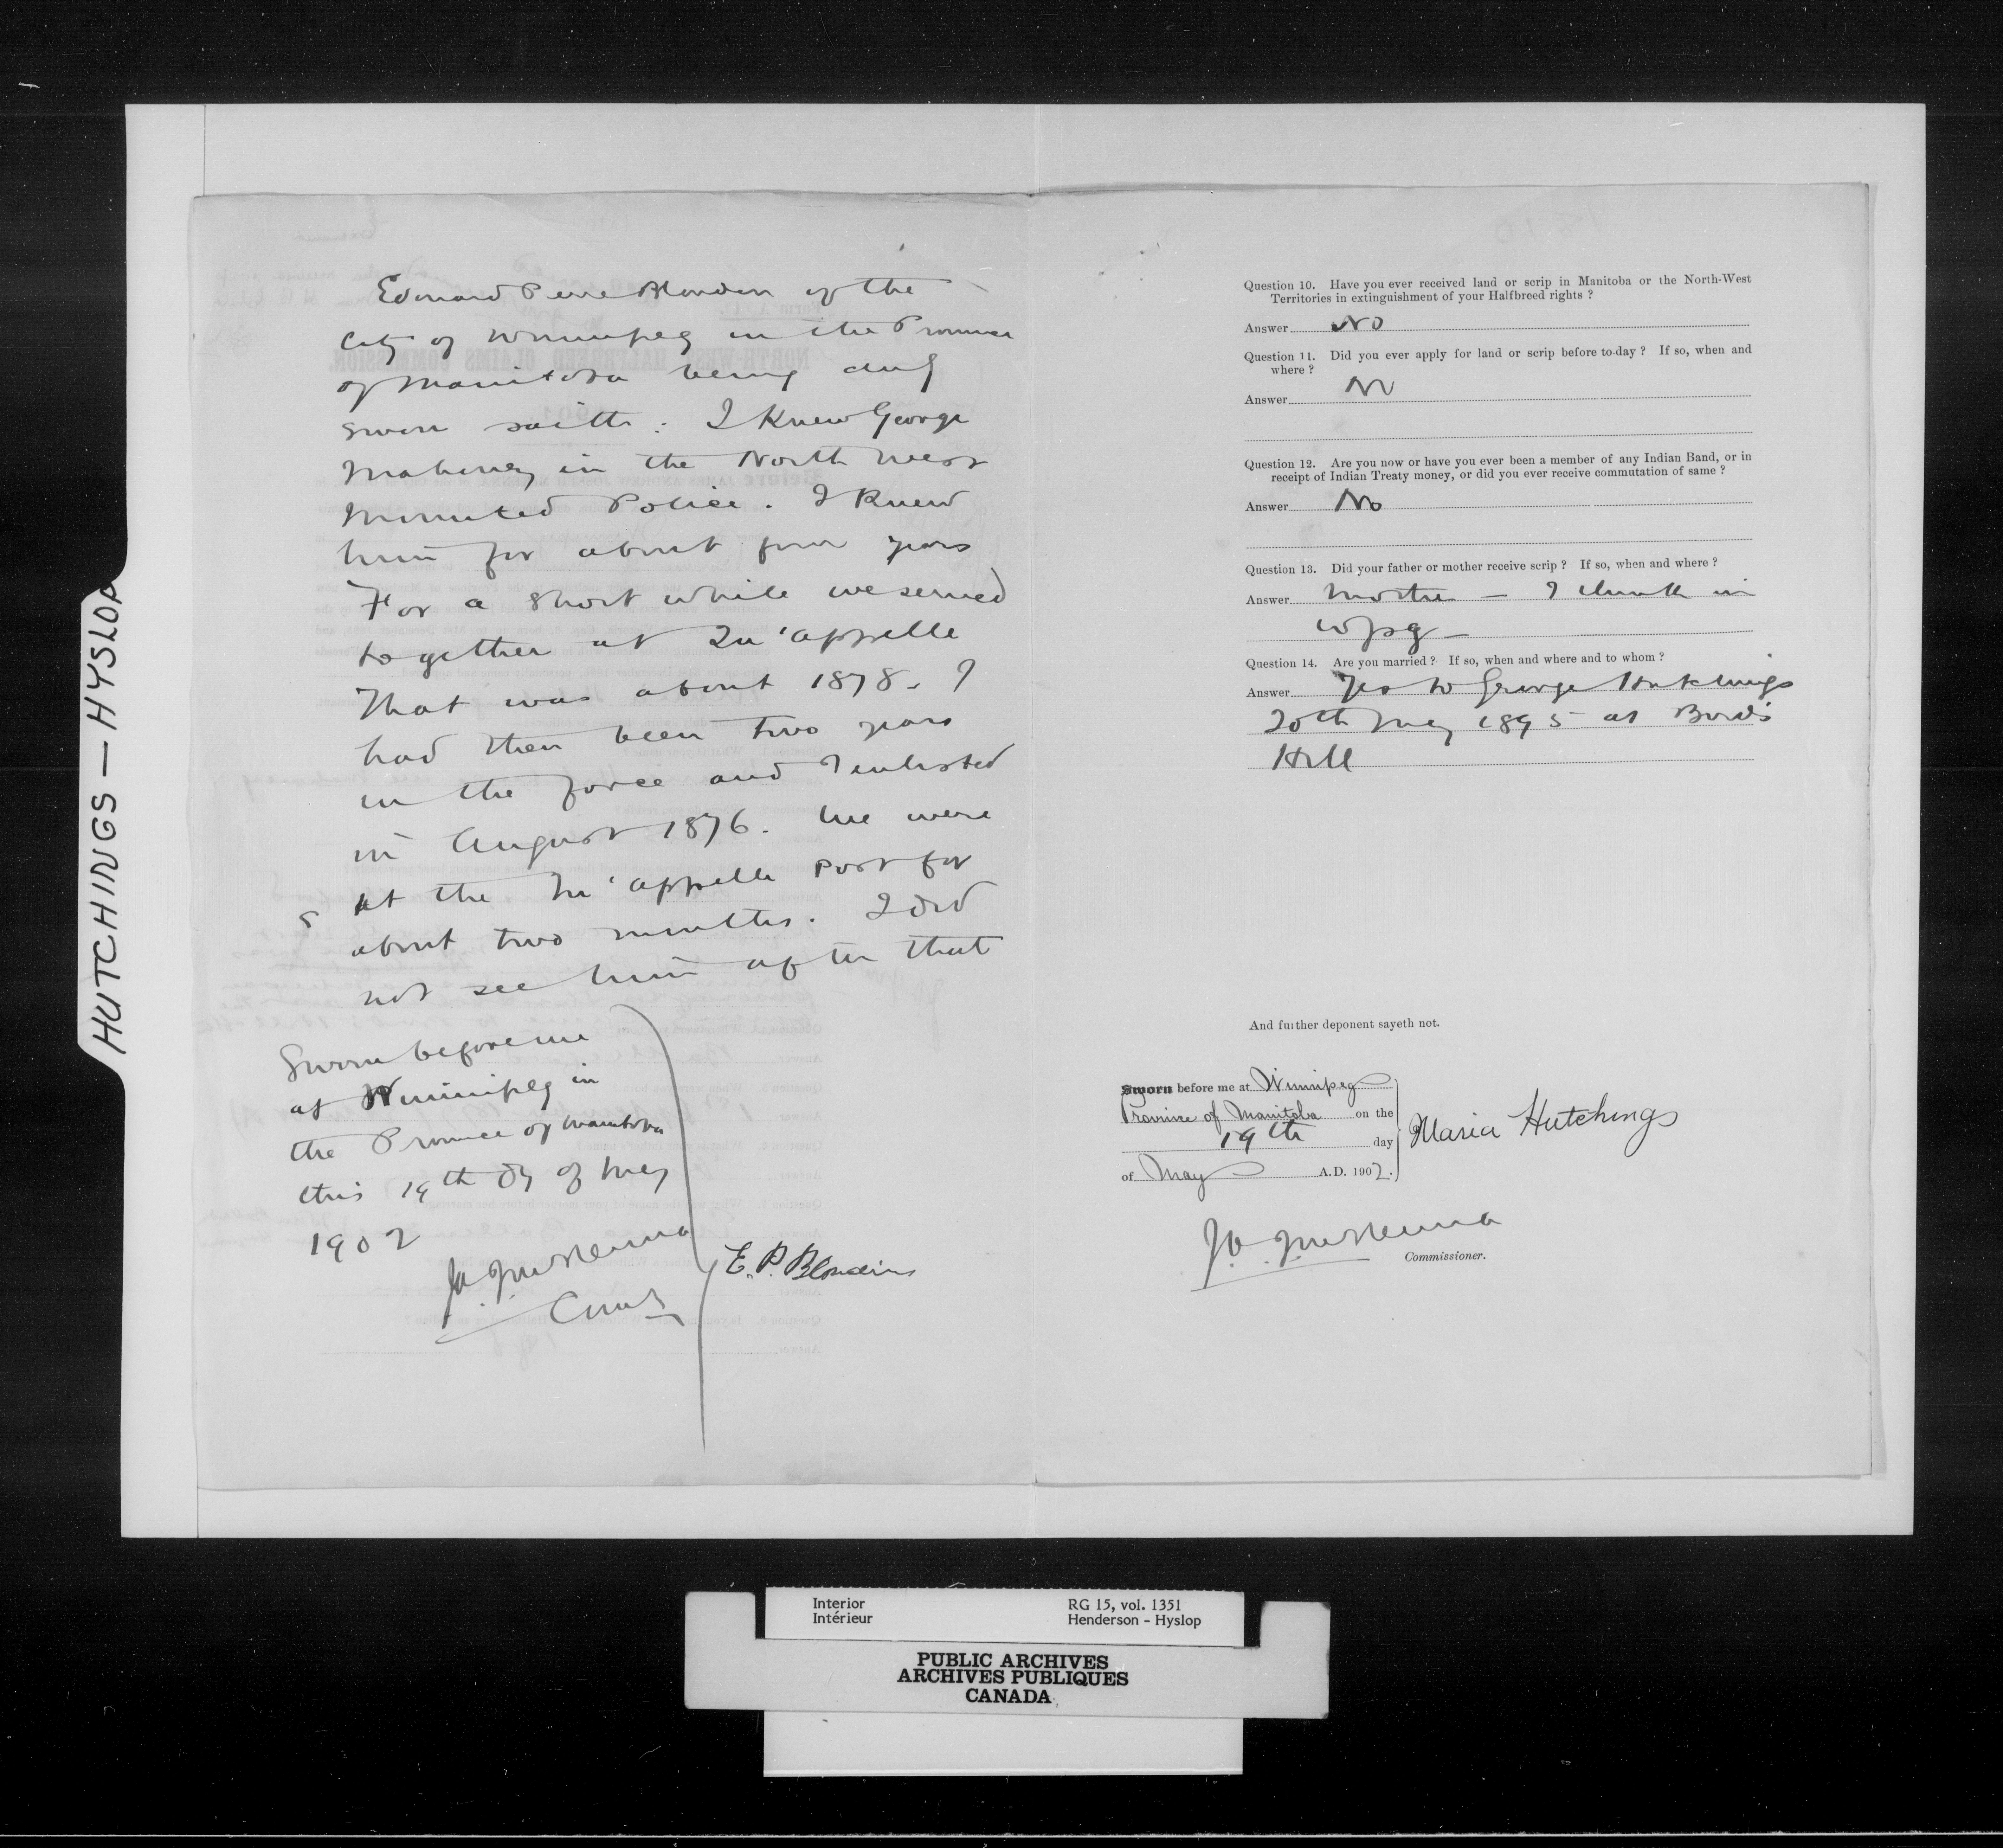 HUTCHINGS — HYSLOP
Edouard Pierre Blondin of the
City of Winnipeg in the Province
of Manitoba being duly
sworn saith: I knew George
Mahoney in the North West
Mounted Police. I knew
him for about four years
For a short while we served
together at Qu'appelle
That was about 1878. I
had then been two years
in the force and I enlisted
in August 1876. We were
at the Qu'appelle Post for
about two months. I did
not see him after that
Sworn before me
at Winnipeg in
the Province of Manitoba
this 19th Dy of May
1902
E. P. Blondin
Question 10. Have you ever received land or scrip in Manitoba or the North-West
Territories in extinguishment of your Halfbreed rights ?
Answer No
Question 11. Did you ever apply for land or scrip before to-day ? If so, when and
where ?
Answer No
Question 12. Are you now or have you ever been a member of any Indian Band, or in
receipt of Indian Treaty money, or did you ever receive commutation of same ?
Answer No
Question 13. Did your father or mother receive scrip ? If so, when and where ?
Answer Mother — I think in
Wpg —
Question 14. Are you married ? If so, when and where and to whom ?
Answer Yes to George Hutchings
20th May 1895 at Bird's
Hill
And further deponent sayeth not.
Sworn before me at Winnipeg
Province of Manitoba on the
19th day
of May A.D. 1902.
Maria Hutchings
J. A. J. McKenna
Commissioner.
Interior
Intérieur
RG 15, vol. 1351
Henderson - Hyslop
PUBLIC ARCHIVES
ARCHIVES PUBLIQUES
CANADA